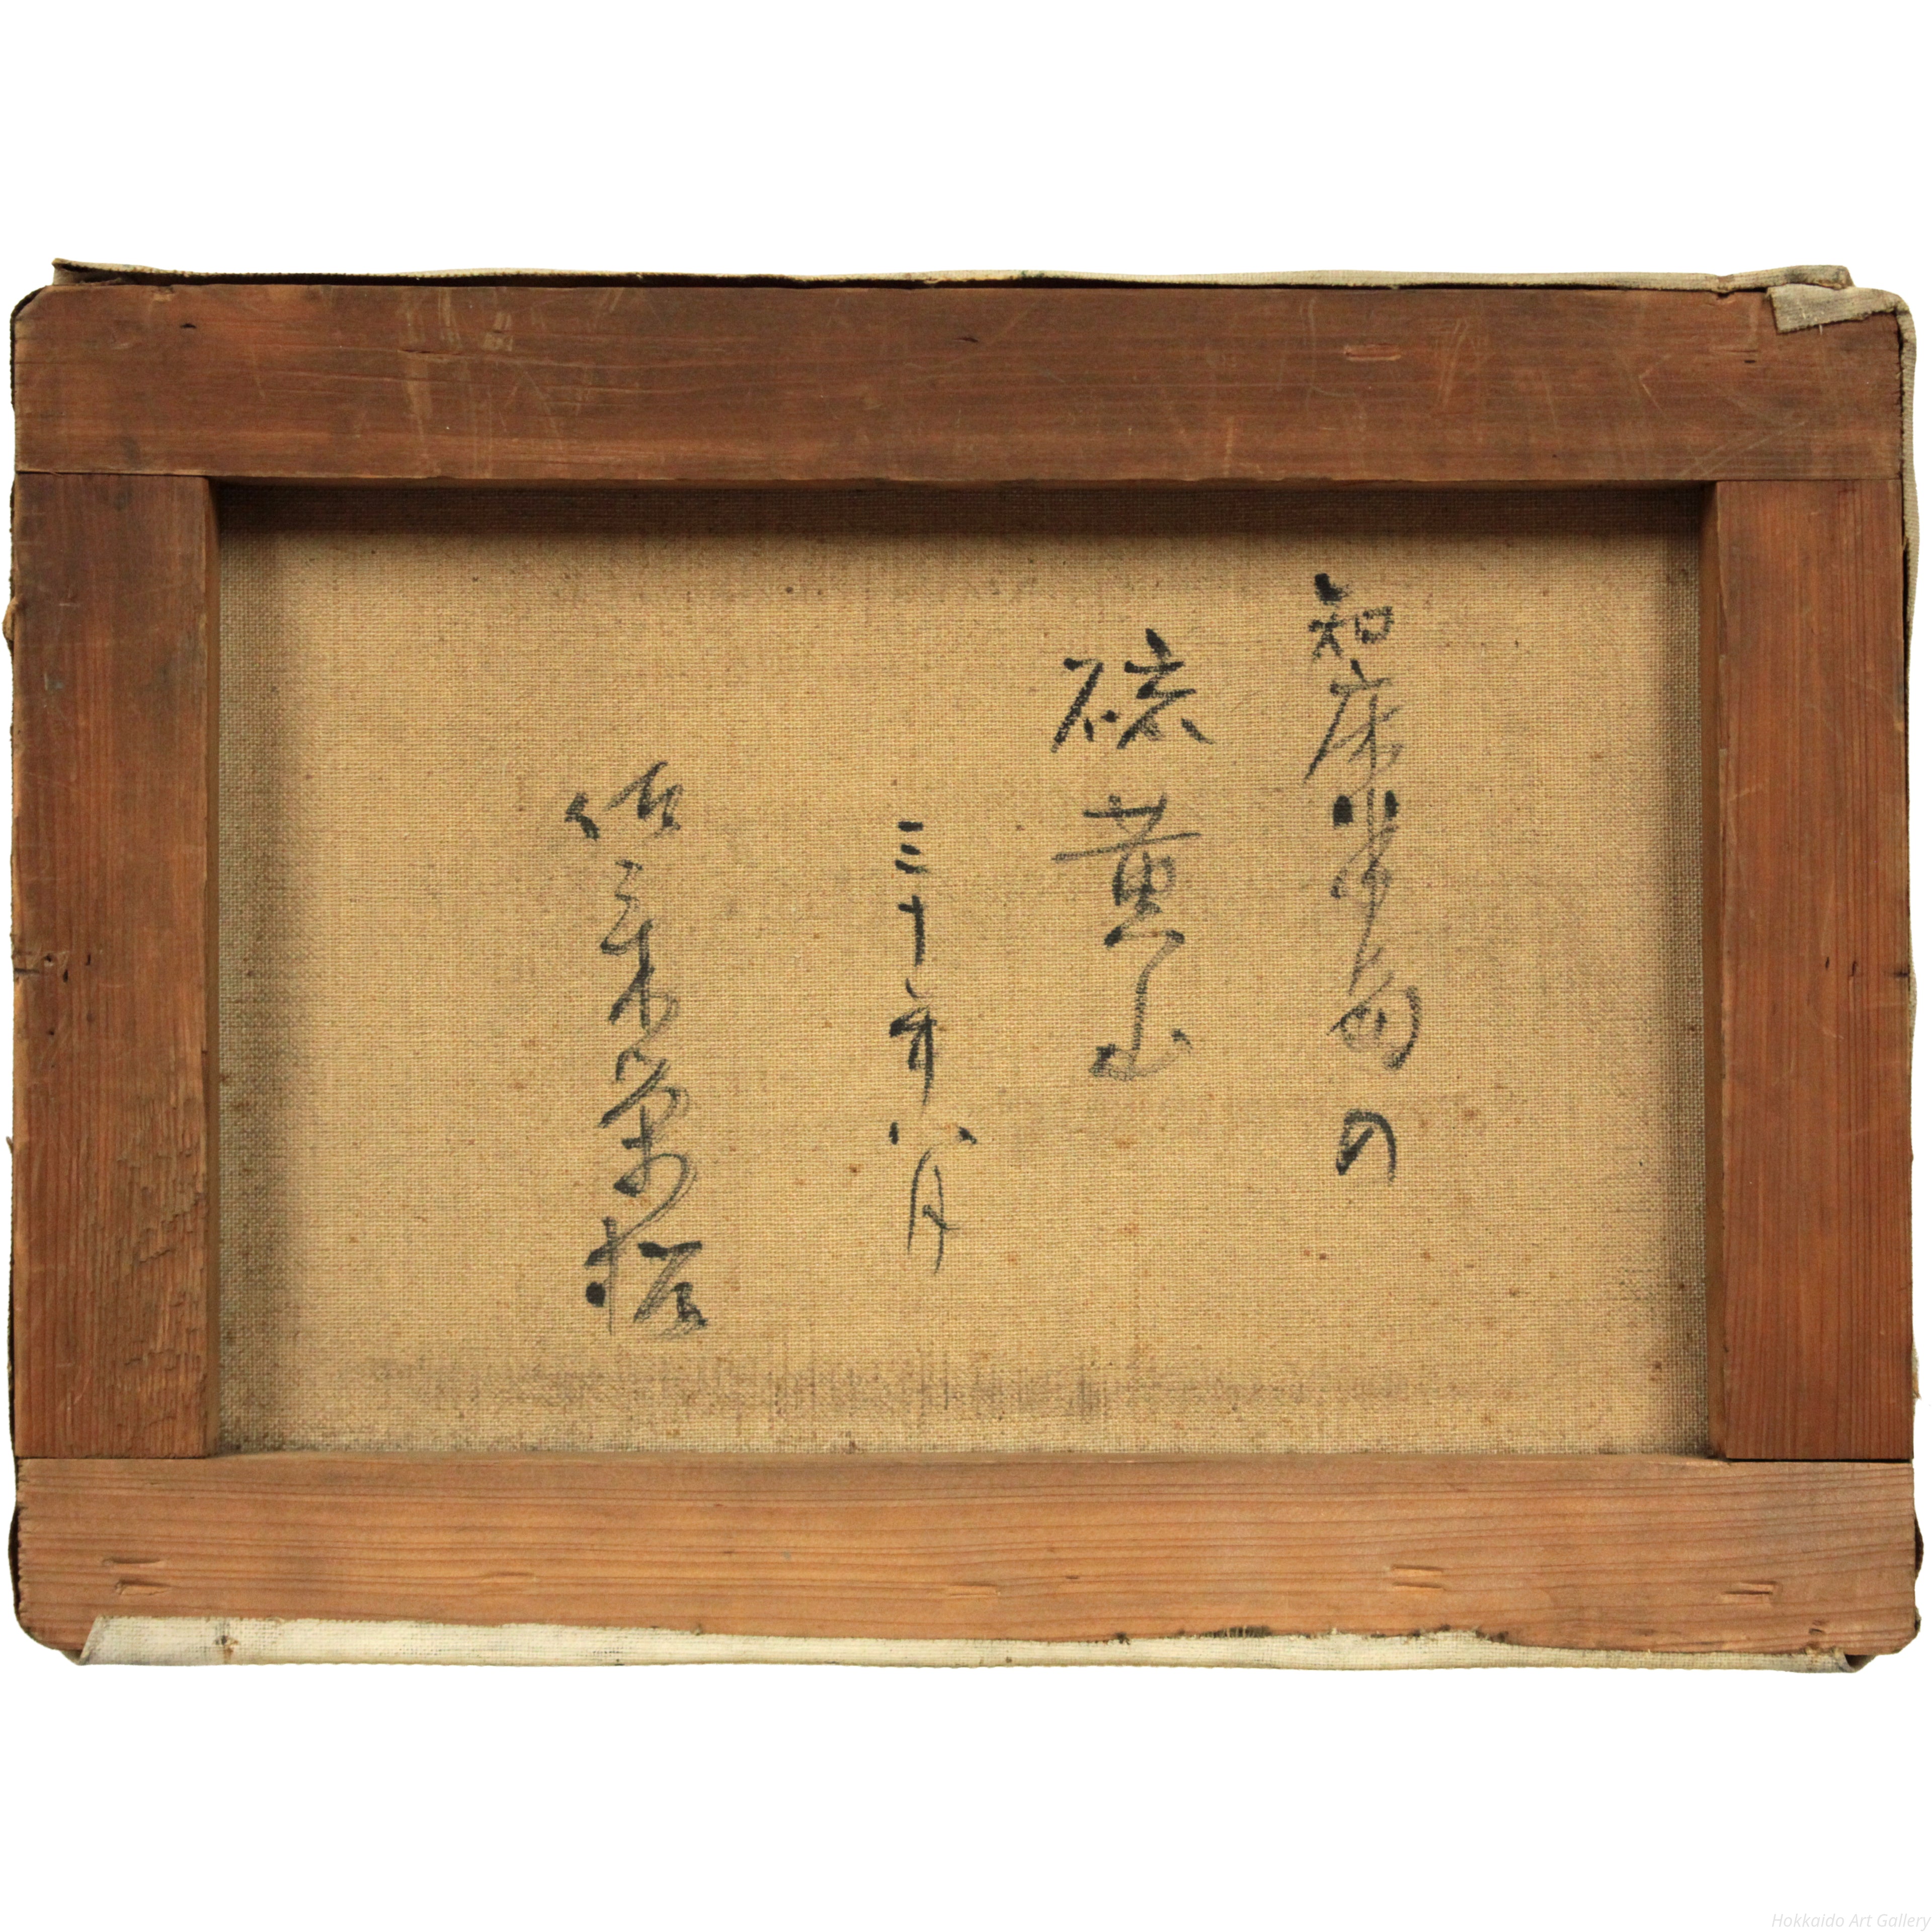 知床半島の
硫黄山
三十年八月
佐々木栄松
Hokkaido Art Gallery